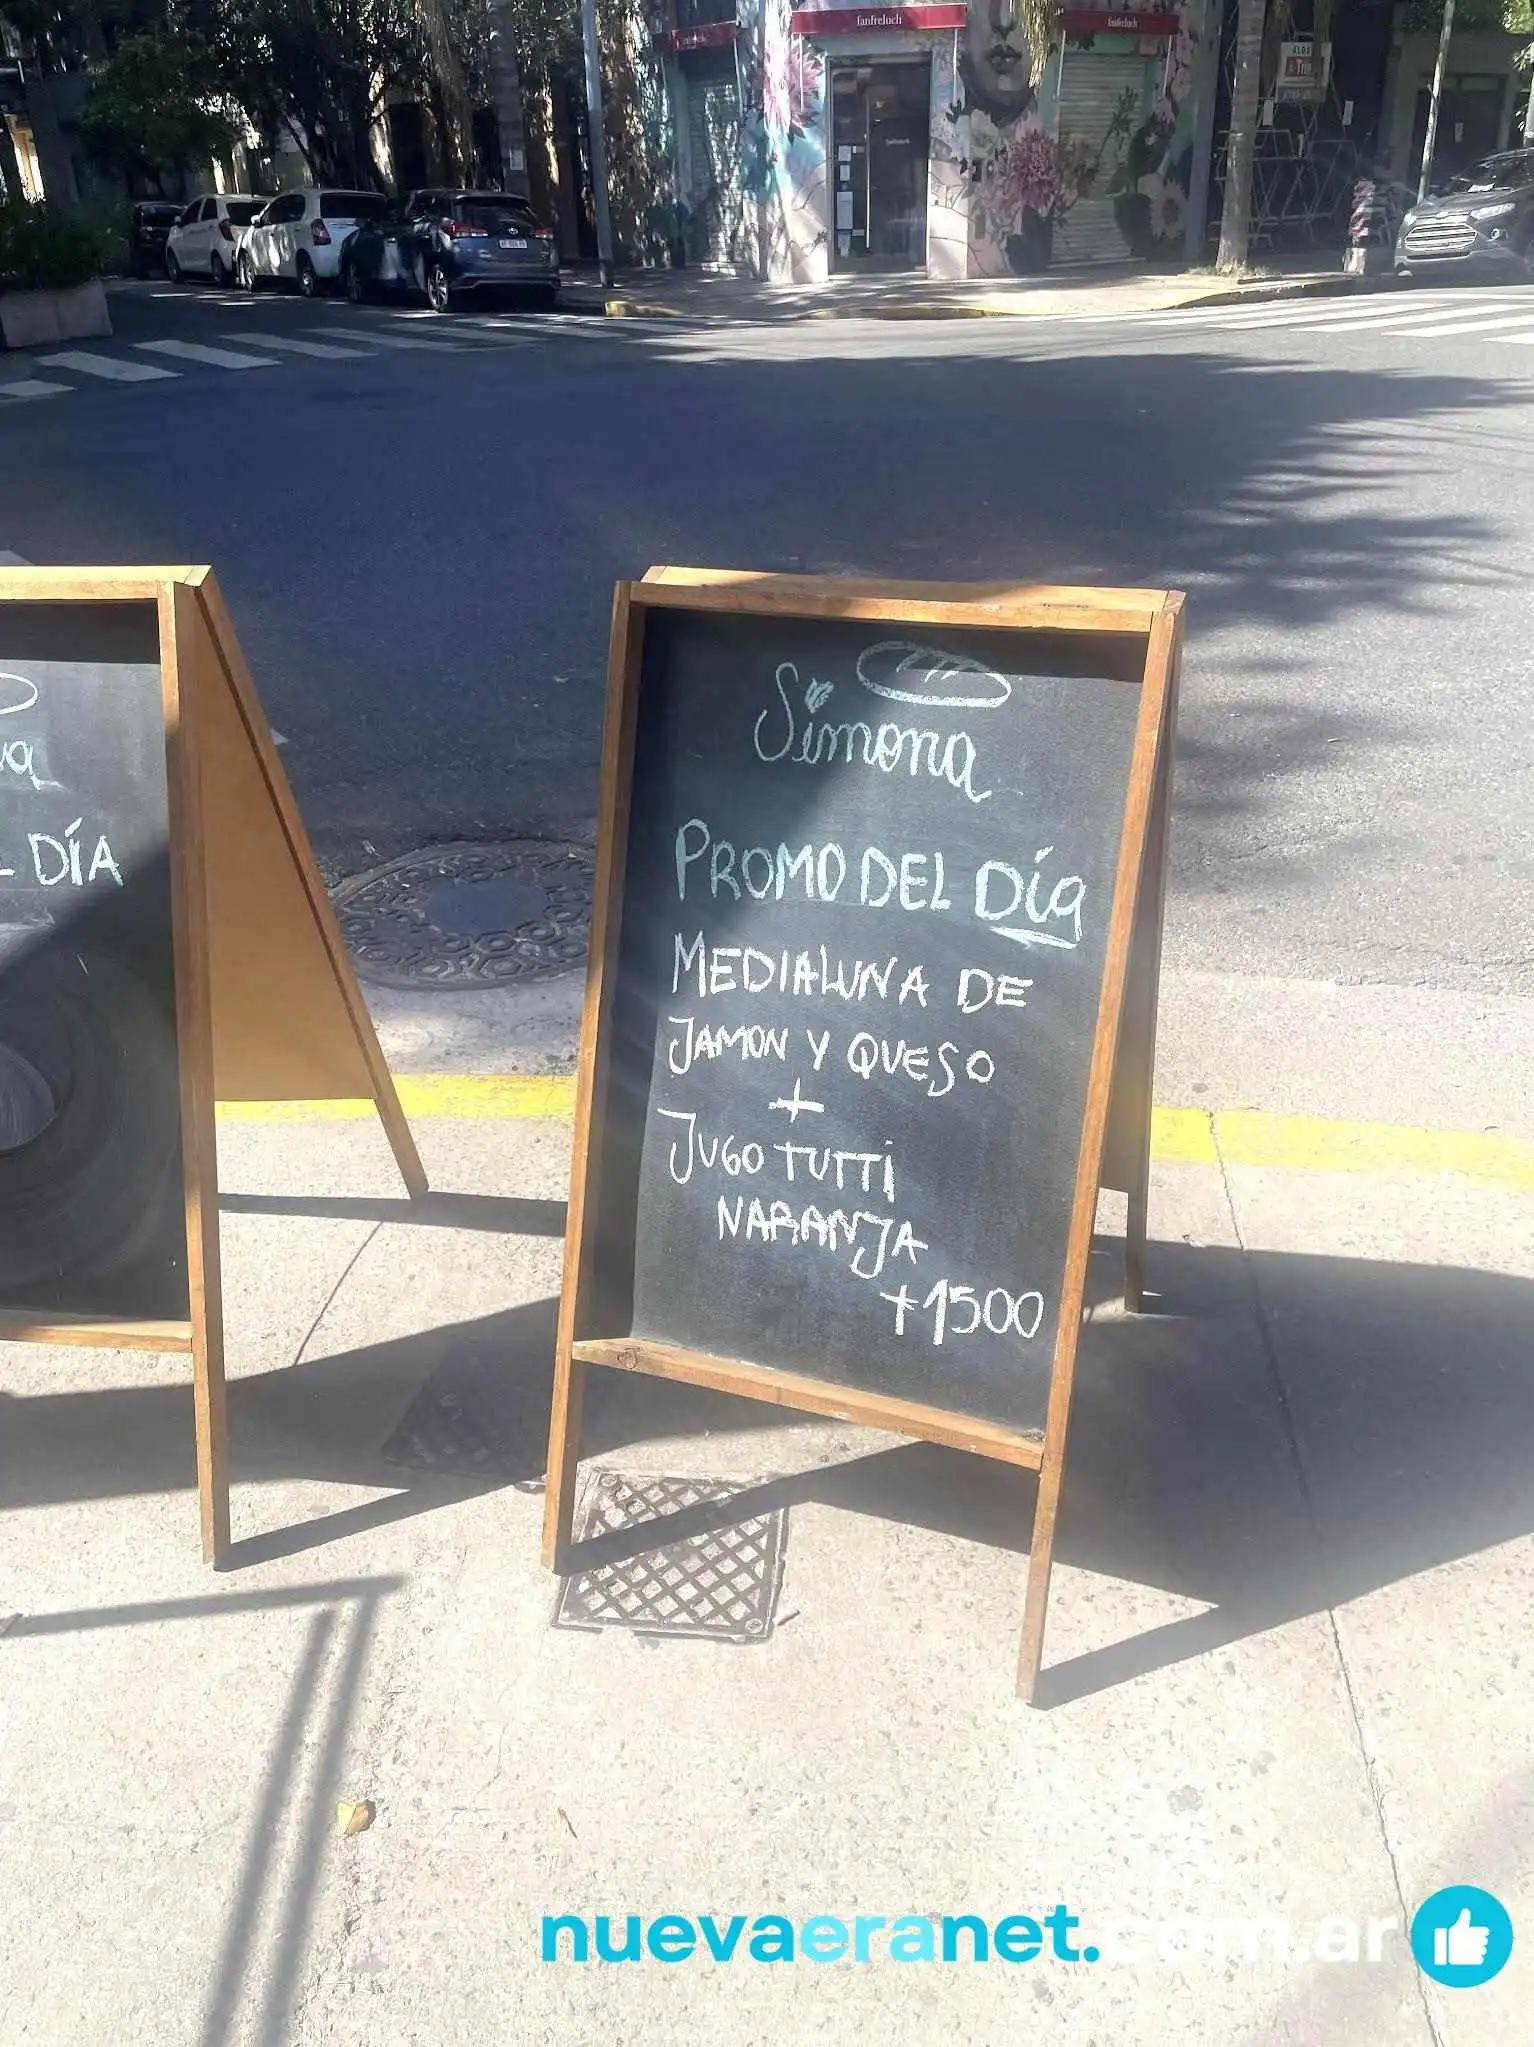 fanfreluch
fanfreluch
Simona
PROMO DEL DÍA
MEDIALUNA DE
JAMON Y QUESO
+
JUGO TUTTI
NARANJA
+1500
L DÍA
nuevaeranet.com.ar